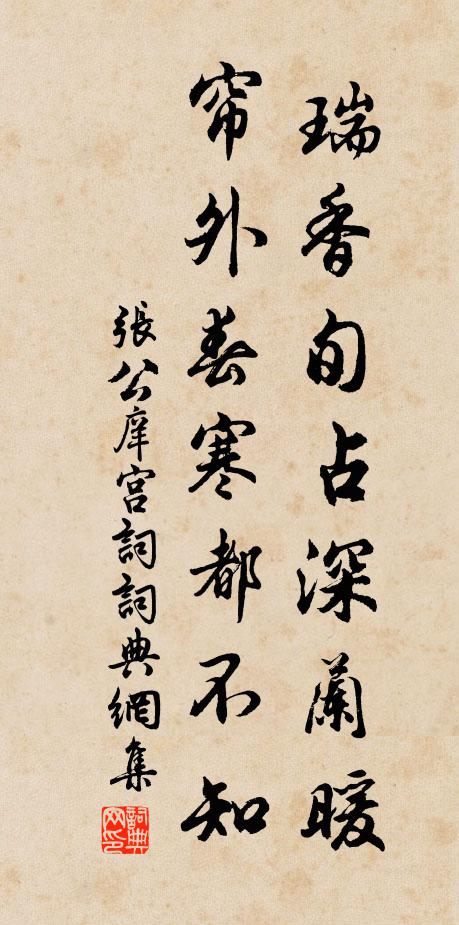 瑞香旬占深蘭暖
帘外春寒都不知
張公庠宫詞詞典網集
詞典网印